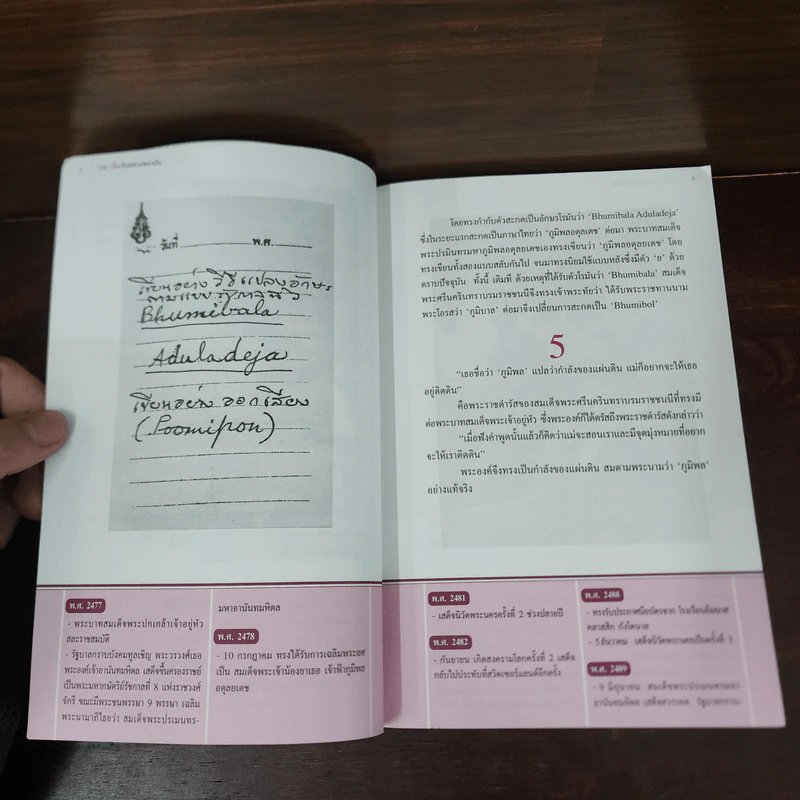 วันที่ พ.ศ.
เขียนอย่าง วิธีแปลงอักษร
ตามแบบ
Bhumibala
Aduladeja
เขียนอย่าง ออกเสียง
(Poomipon)
พ.ศ. 2477
- พระบาทสมเด็จพระปกเกล้าเจ้าอยู่หัว
สละราชสมบัติ
- รัฐบาลกราบบังคมทูลเชิญ พระวรวงศ์เธอ
พระองค์เจ้าอานันทมหิดล เสด็จขึ้นครองราชย์
เป็นพระมหากษัตริย์รัชกาลที่ 8 แห่งราชวงศ์
จักรี ขณะมีพระชนพรรษา 9 พรรษา เฉลิม
พระนามาภิไธยว่า สมเด็จพระปรเมนทร-
มหาอานันทมหิดล
พ.ศ. 2478
- 10 กรกฎาคม ทรงได้รับการเฉลิมพระยศ
เป็น สมเด็จพระเจ้าน้องยาเธอ เจ้าฟ้าภูมิพล
อดุลยเดช
โดยทรงกำกับตัวสะกดเป็นอักษรโรมันว่า 'Bhumibala Aduladeja'
ซึ่งในระยะแรกสะกดเป็นภาษาไทยว่า 'ภูมิพลอดุลเดช' ต่อมา พระบาทสมเด็จ
พระปรมินทรมหาภูมิพลอดุลยเดชเองทรงเขียนว่า 'ภูมิพลอดุลยเดช' โดย
ทรงเขียนทั้งสองแบบสลับกันไป จนมาทรงนิยมใช้แบบหลังซึ่งมีตัว 'ย' ด้วย
ตราบปัจจุบัน ทั้งนี้ เดิมที ด้วยเหตุที่ได้รับตัวโรมันว่า 'Bhumibala' สมเด็จ
พระศรีนครินทราบรมราชชนนีจึงทรงเข้าพระทัยว่า ได้รับพระราชทานนาม
พระโอรสว่า 'ภูมิบาล' ต่อมาจึงเปลี่ยนการสะกดเป็น 'Bhumibol'
5
"เธอชื่อว่า 'ภูมิพล' แปลว่ากำลังของแผ่นดิน แม่ก็อยากจะให้เธอ
อยู่ติดดิน"
คือพระราชดำรัสของสมเด็จพระศรีนครินทราบรมราชชนนีที่ทรงมี
ต่อพระบาทสมเด็จพระเจ้าอยู่หัว ซึ่งพระองค์ก็ได้ตรัสถึงพระราชดำรัสดังกล่าวว่า
"เมื่อฟังคำพูดนั้นแล้วก็คิดว่าแม่จะสอนเราและมีจุดมุ่งหมายที่อยาก
จะให้เราติดดิน"
พระองค์จึงทรงเป็นกำลังของแผ่นดิน สมตามพระนามว่า 'ภูมิพล'
อย่างแท้จริง
พ.ศ. 2481
- เสด็จนิวัตพระนครครั้งที่ 2 ช่วงปลายปี
พ.ศ. 2482
- กันยายน เกิดสงครามโลกครั้งที่ 2 เสด็จ
กลับไปประทับที่สวิตเซอร์แลนด์อีกครั้ง
พ.ศ. 2488
- ทรงรับประกาศนียบัตรจาก โรงเรียนยิมนาส
คลาสสิก กังโตนาล
- 5 ธันวาคม เสด็จนิวัตพระนครเป็นครั้งที่ 3
พ.ศ. 2489
- 9 มิถุนายน สมเด็จพระปรเมนทรมหา
อานันทมหิดล เสด็จสวรรคต รัฐบาลกราบ-